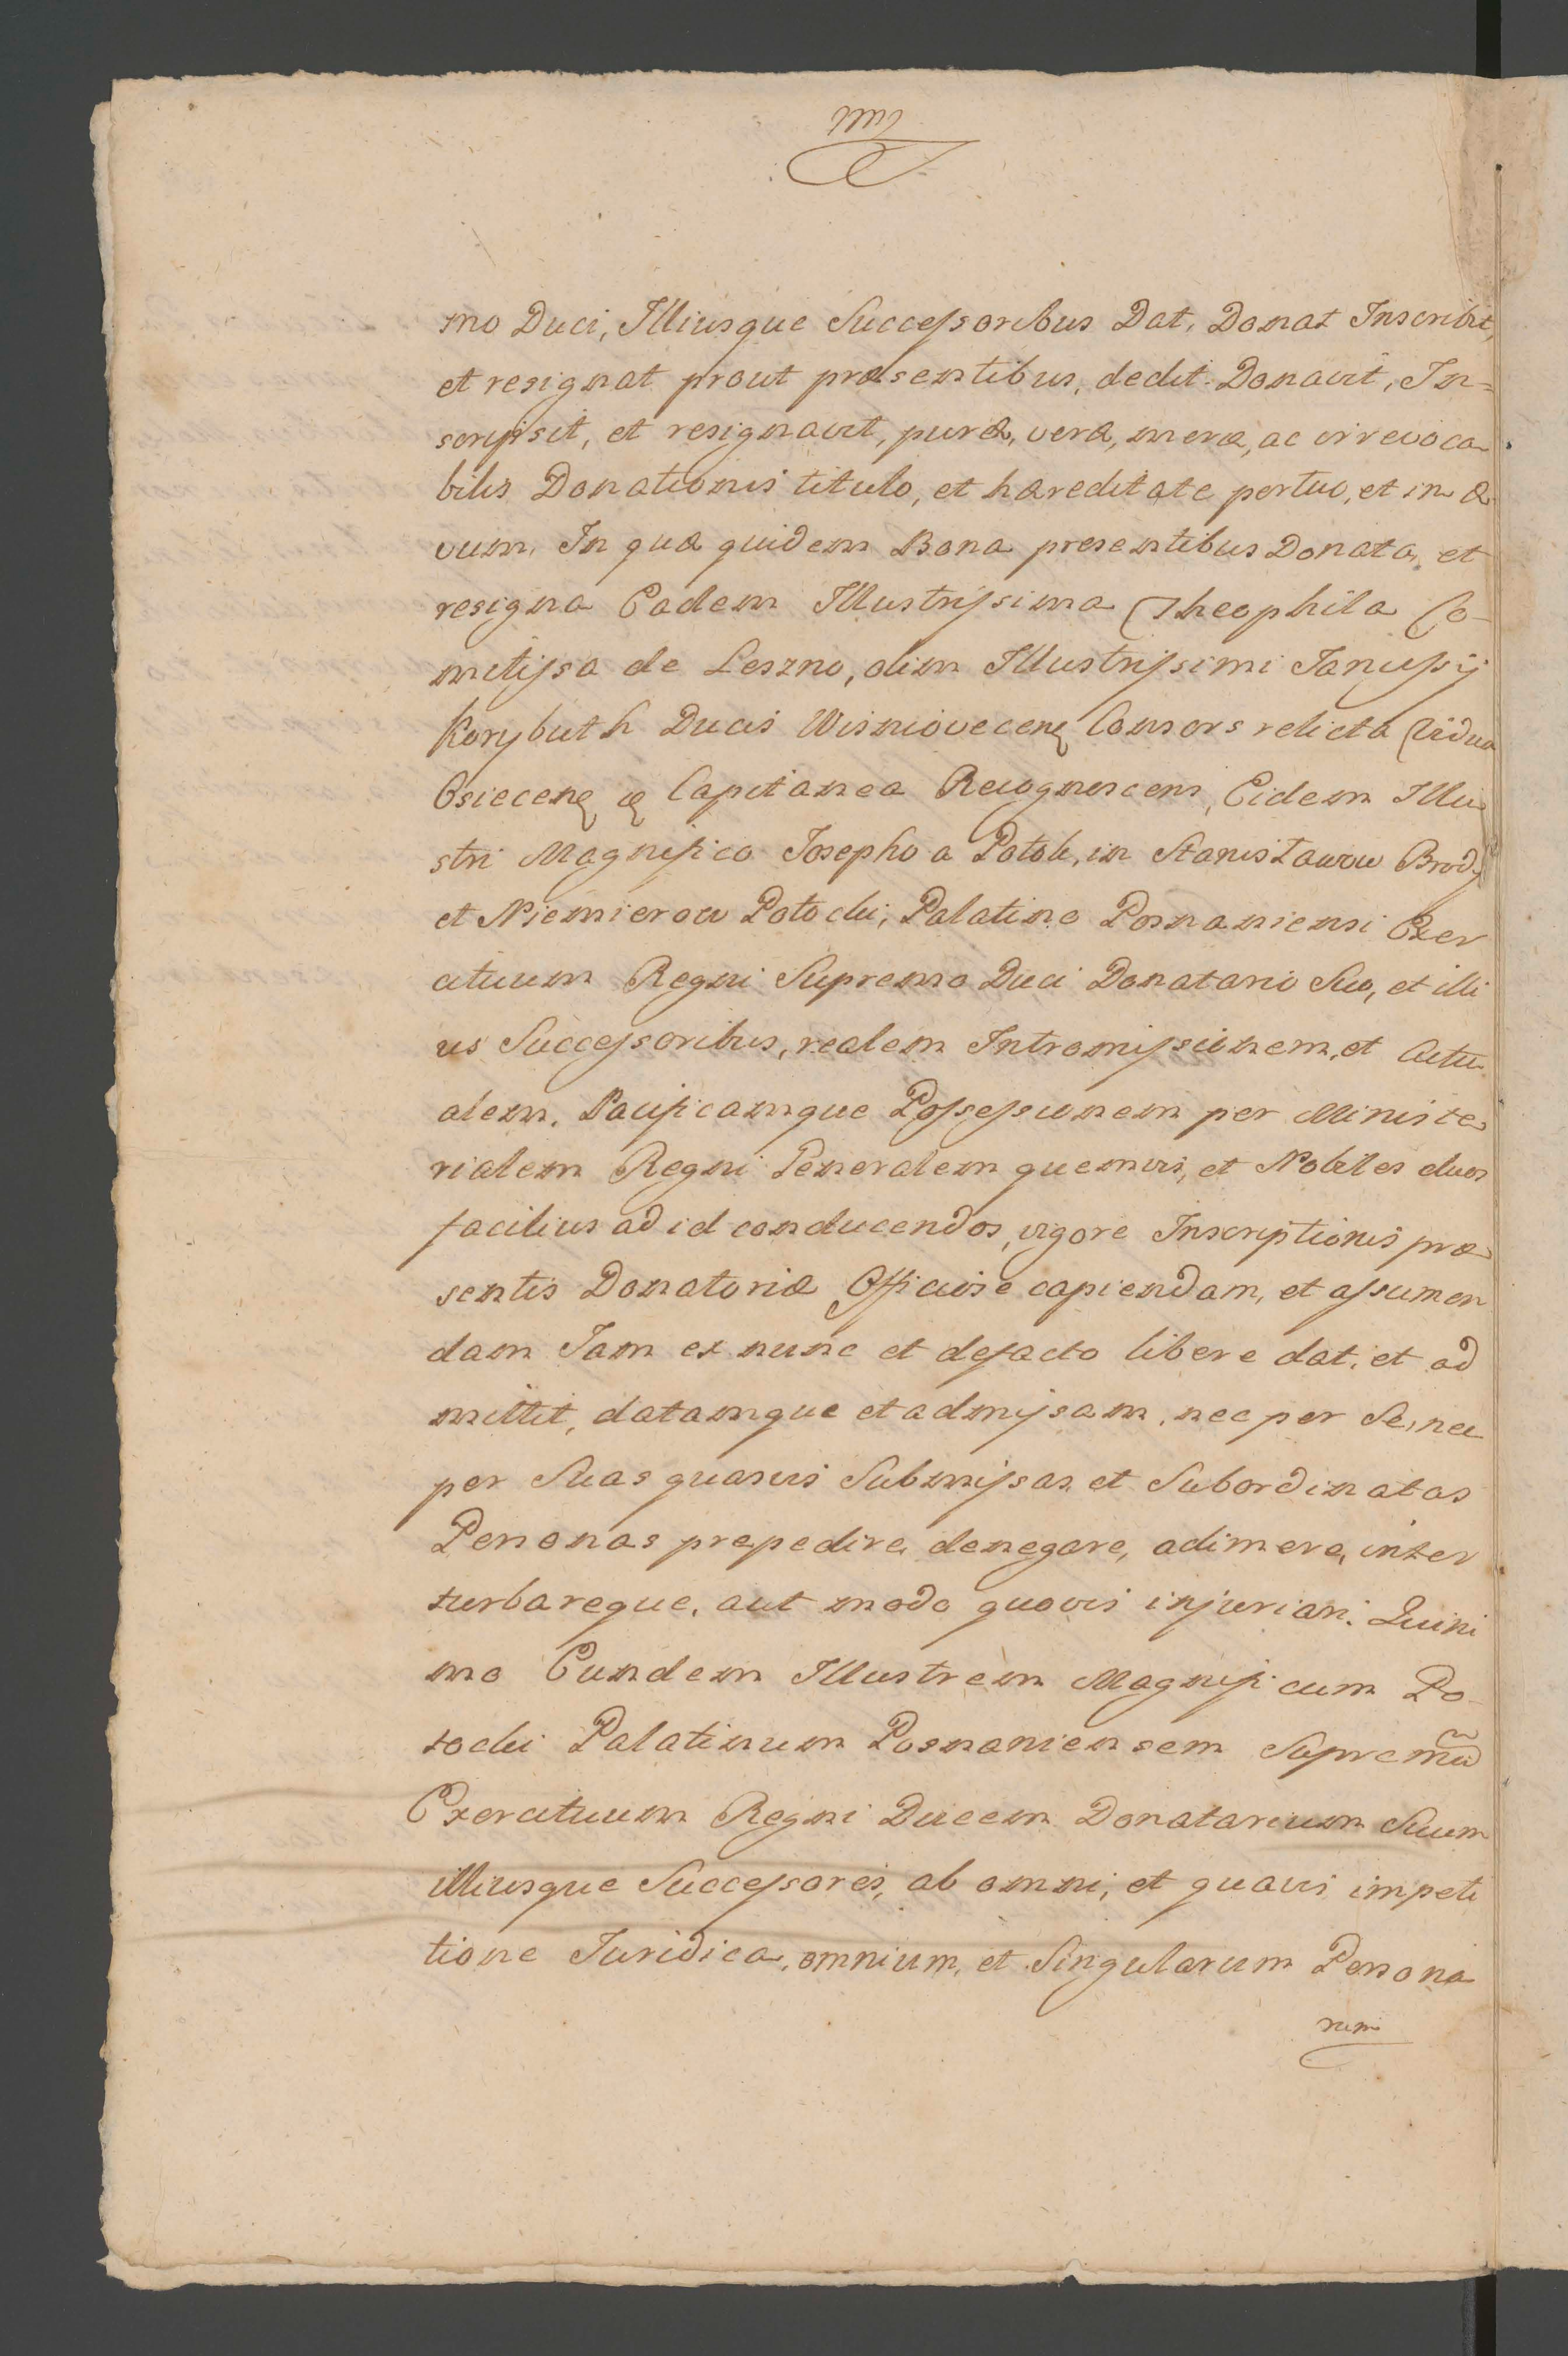 mo Duci, Illiusque Successoribus Dat, Donat Inscribit,
et resignat prout præsentibus, dedit Donavit, In=
scripsit, et resignavit, puræ, veræ, meræ, ac irrevoca
bilis Donationis titulo, et hæreditate pertuo, et in æ
vum, In quæ quidem Bona presentibus Donata, et
resigna Eadem Illustrissima Theophila Co-
mitissa de Leszno, olim Illustrissimi Janussij
Korybuth Ducis Wisniovecen Consors relicta Vidua
Osiecen Capitanea Recognoscens, Eidem Illu
stri Magnifico Josepho a Potok, in Stanisławow Brody
et Niemierow Potocki, Palatino Posnaniensi Exer
cituum Regni Supremo Duci Donatario Suo, et illi
us Successoribus, realem Intromissionem, et Actu
alem, Pacificamque Possessionem per Ministe
rialem Regni Generalem quemvis, et Nobiles duos
facilius ad id conducendos, vigore Inscriptionis præ
sentis Donatoriæ Officiose capiendam, et assumen
dam Jam ex nunc et defacto libere dat, et ad
mittit, datamque et admissam, nec per Se, nec
per Suas quasvis Submissas et Subordinatas
Personas prepedire, denegare, adimere, inter
turbareque, aut modo quovis injuriari. Quini
mo Eundem Illustrem Magnificum Po
tocki Palatinum Posnaniensem Supremũ
Exercituum Regni Ducem Donatarium Suum
illiusque Successores, ab omni, et quavis impeti
tione Juridica, omnium, et Singularum Persona
rum